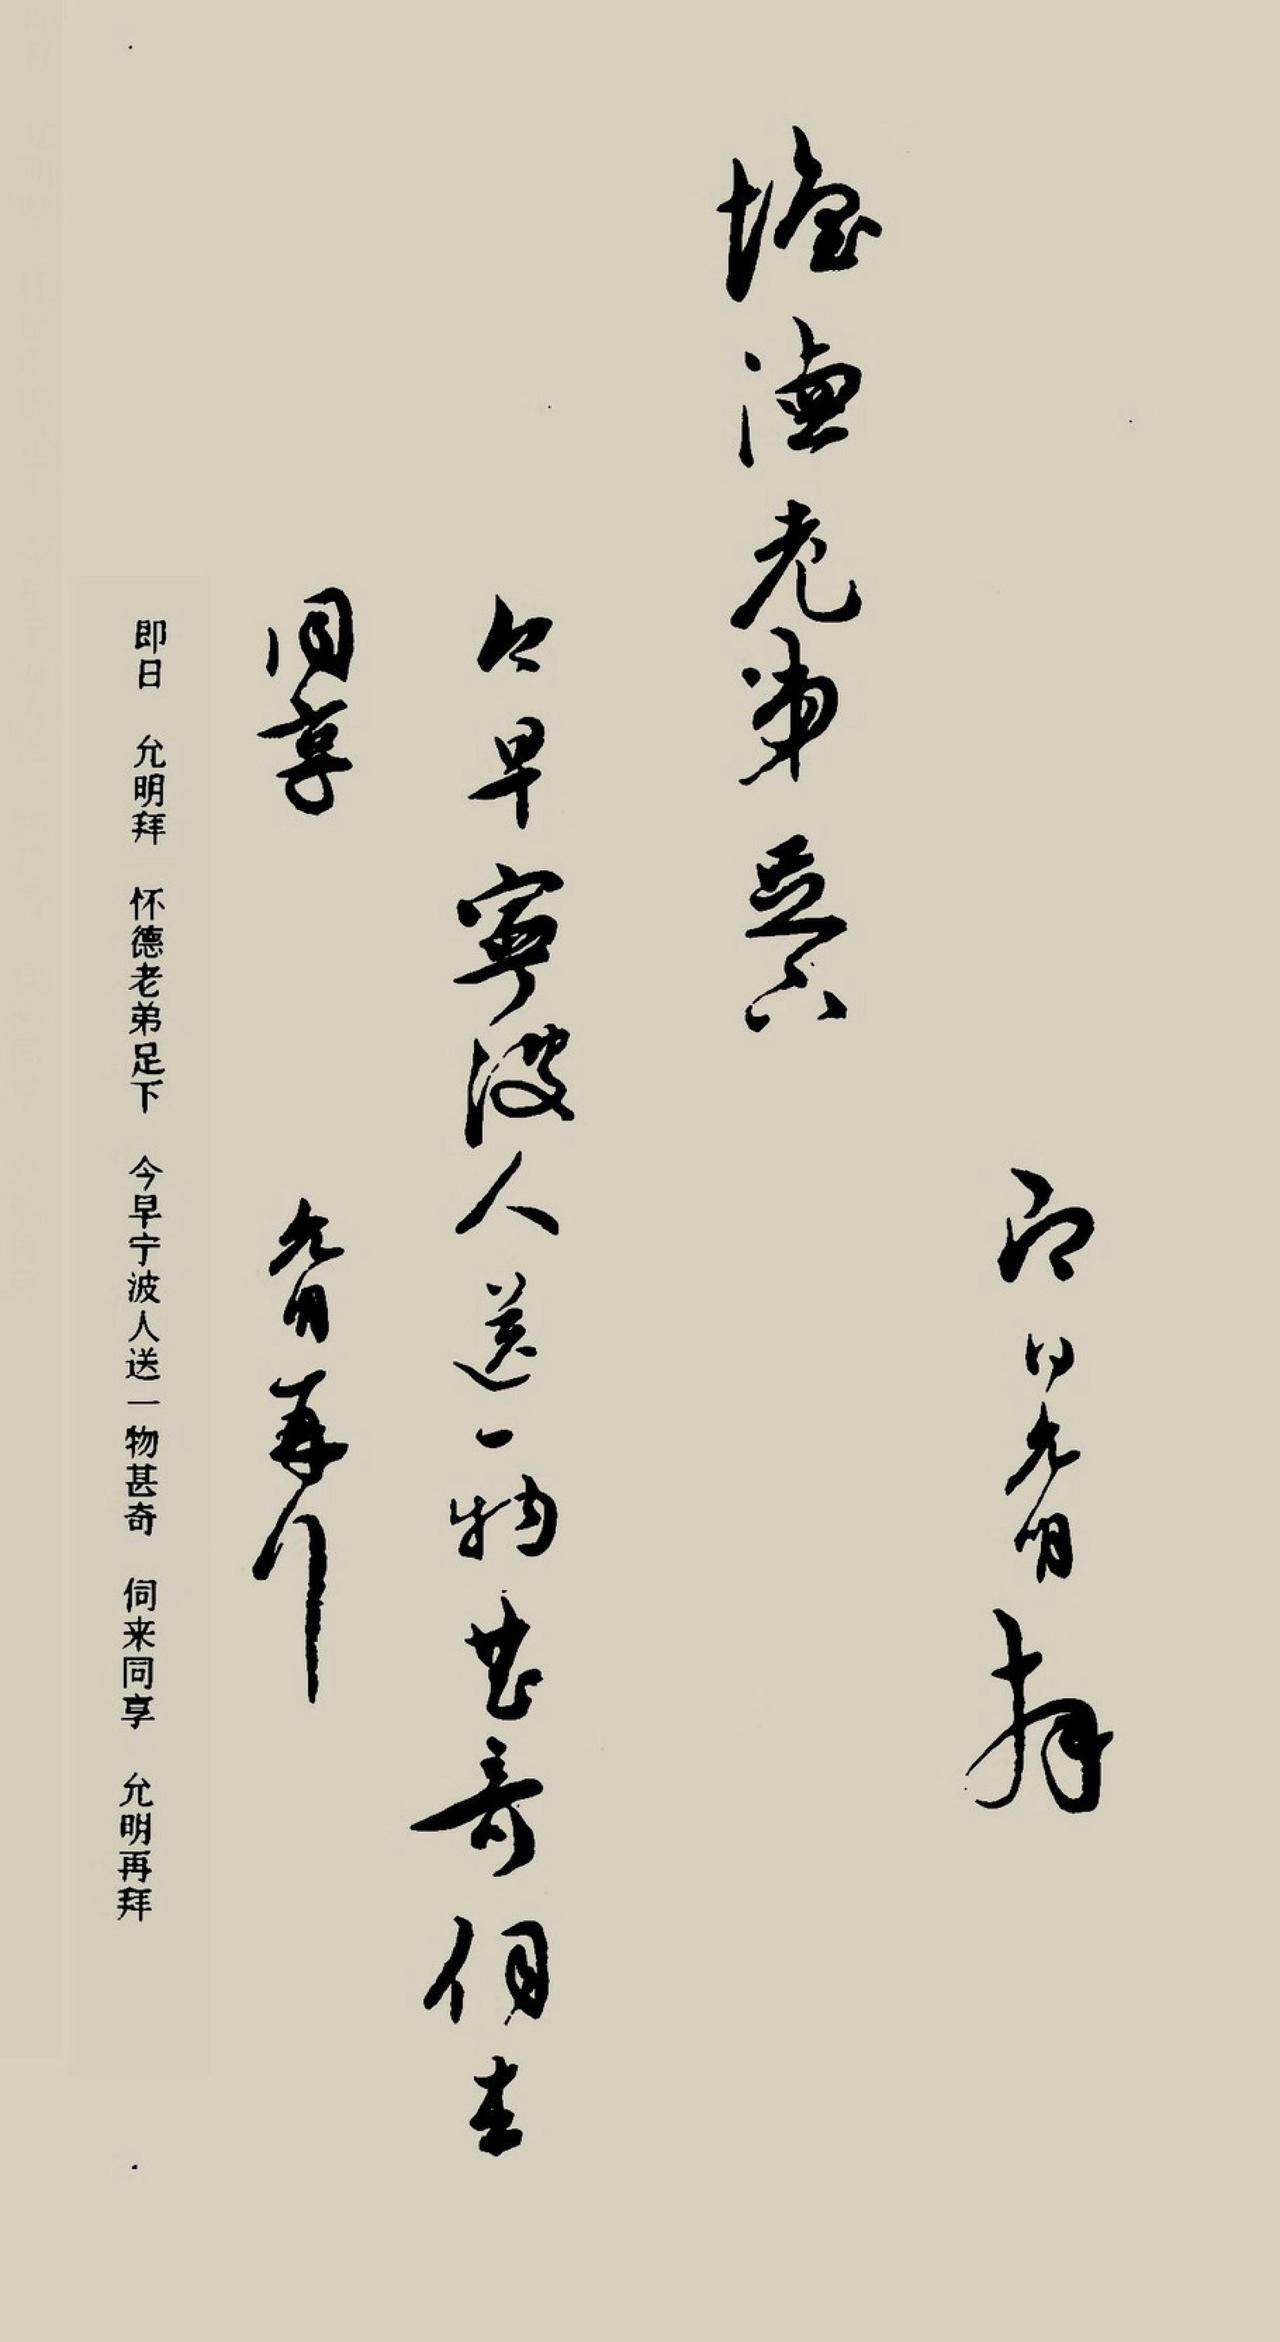 即日允明拜
怀德老弟足下
今早寧波人送一物甚奇伺来
同享 允明再拜
即日 允明拜 怀德老弟足下 今早宁波人送一物甚奇 伺来同享 允明再拜